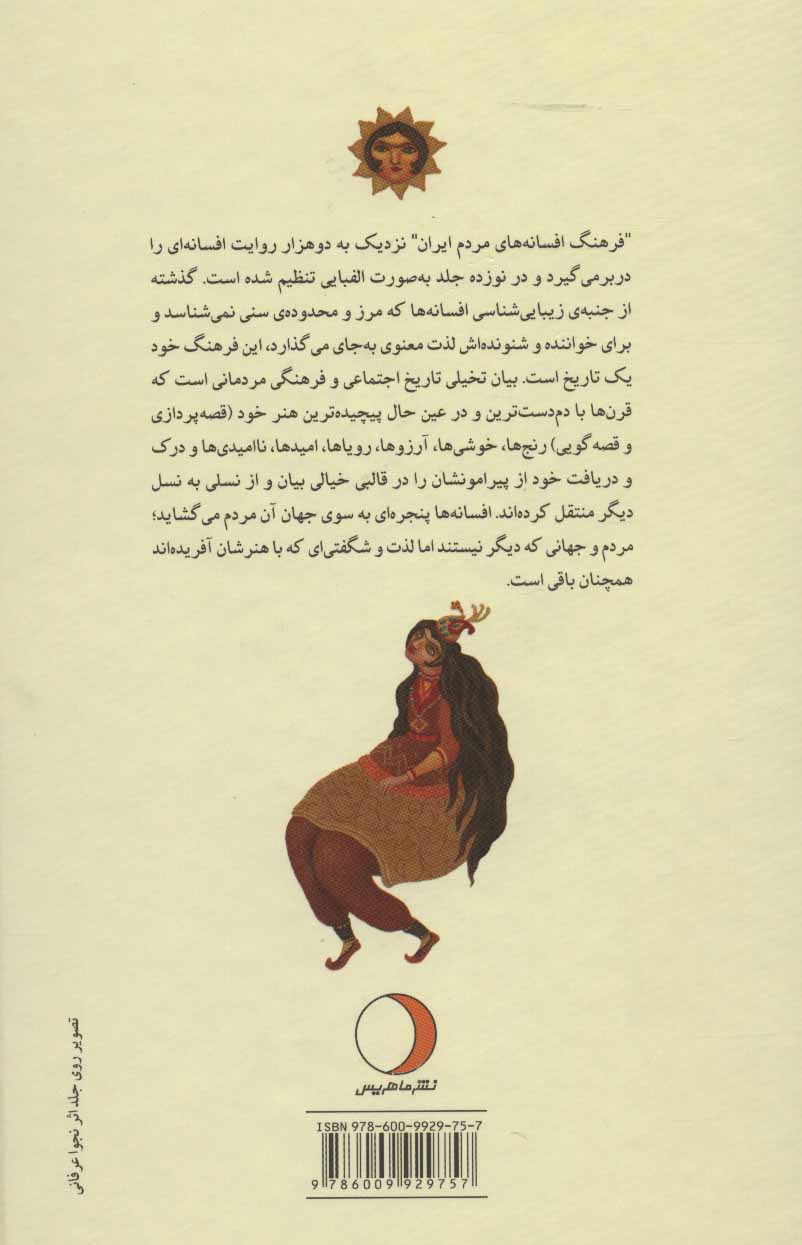 "فرهنگ افسانه‌های مردم ایران" نزدیک به دوهزار روایت افسانه‌ای را
دربرمی‌گیرد و در نوزده جلد به‌صورت الفبایی تنظیم شده است. گذشته
از جنبه‌ی زیبایی‌شناسی افسانه‌ها که مرز و محدوده‌ی سنی نمی‌شناسد و
برای خواننده و شنونده‌اش لذت معنوی به‌جای می‌گذارد، این فرهنگ خود
یک تاریخ است. بیان تخیلی تاریخ اجتماعی و فرهنگی مردمانی است که
قرن‌ها با دم‌دست‌ترین و در عین حال پیچیده‌ترین هنر خود (قصه‌پردازی
و قصه‌گویی) رنج‌ها، خوشی‌ها، آرزوها، رویاها، امیدها، ناامیدی‌ها و درک
و دریافت خود از پیرامونشان را در قالبی خیالی بیان و از نسلی به نسل
دیگر منتقل کرده‌اند. افسانه‌ها پنجره‌ای به سوی جهان آن مردم می‌گشاید؛
مردم و جهانی که دیگر نیستند اما لذت و شگفتی‌ای که با هنرشان آفریده‌اند
همچنان باقی است.
نشر ماهریس
ISBN 978-600-9929-75-7
9 786009 929757
تصویر روی جلد اثر نجوا عرفانی